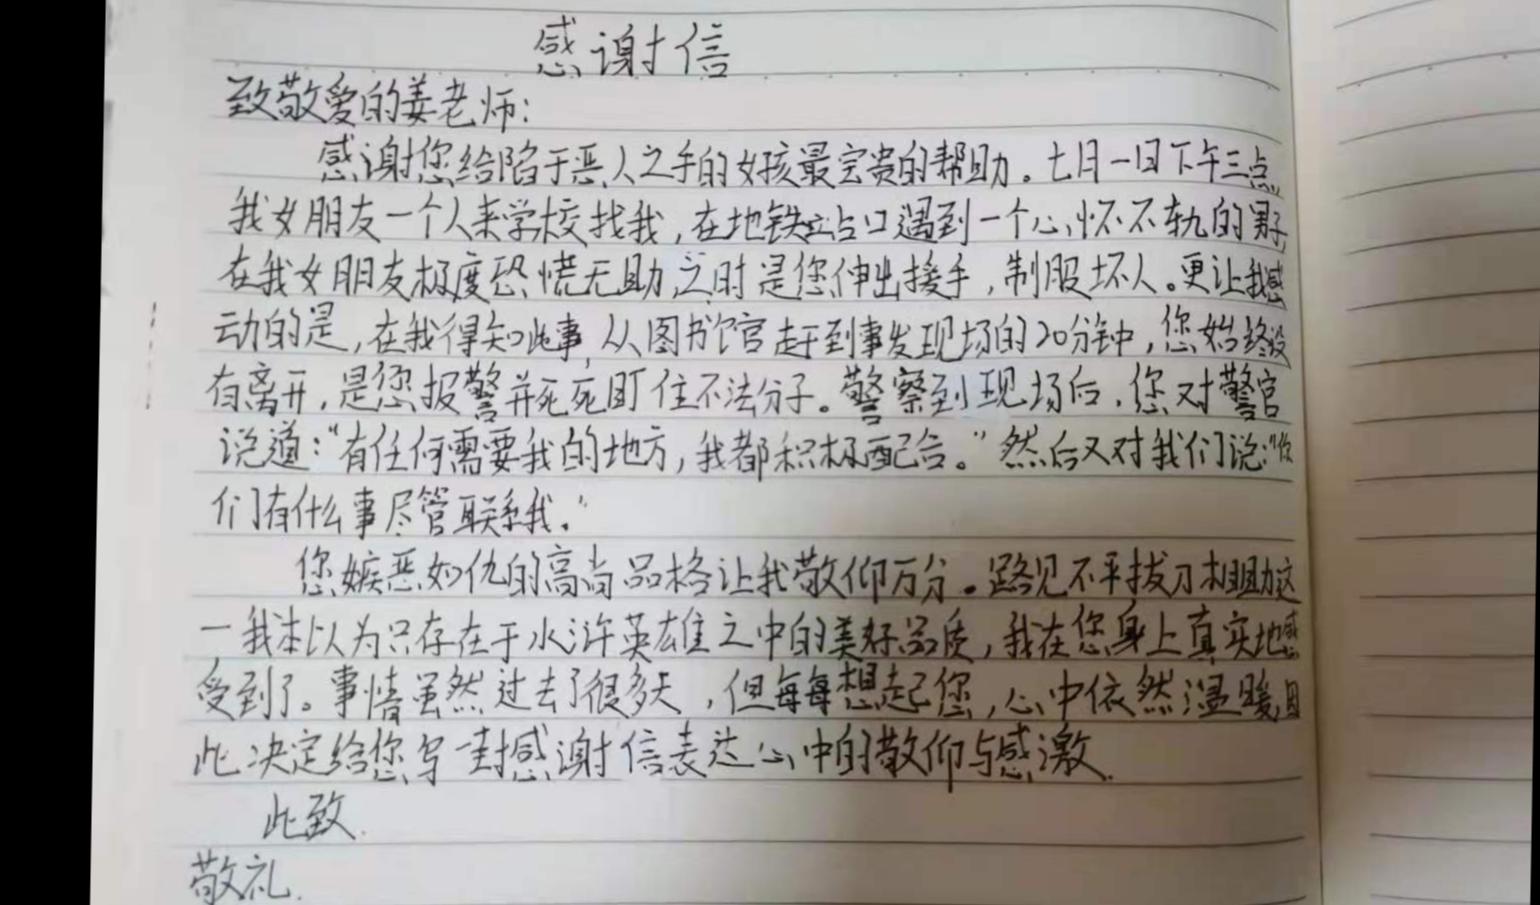 感谢信
致敬爱的姜老师：
感谢您给陷于恶人之手的女孩最宝贵的帮助。七月一日下午三点，
我女朋友一个人来学校找我，在地铁站口遇到一个心怀不轨的男子，
在我女朋友极度恐慌无助之时是您伸出援手，制服坏人。更让我感
动的是，在我得知此事，从图书馆赶到事发现场的20分钟，您始终没
有离开，是您报警并死死盯住不法分子。警察到现场后，您对警官
说道：“有任何需要我的地方，我都积极配合。”然后又对我们说：“你
们有什么事尽管联系我。”
您嫉恶如仇的高尚品格让我敬仰万分。路见不平拔刀相助这
一我本以为只存在于水浒英雄之中的美好品质，我在您身上真实地感
受到了。事情虽然过去了很多天，但每每想起您，心中依然温暖，因
此决定给您写一封感谢信表达心中的敬仰与感激.
此致.
敬礼.